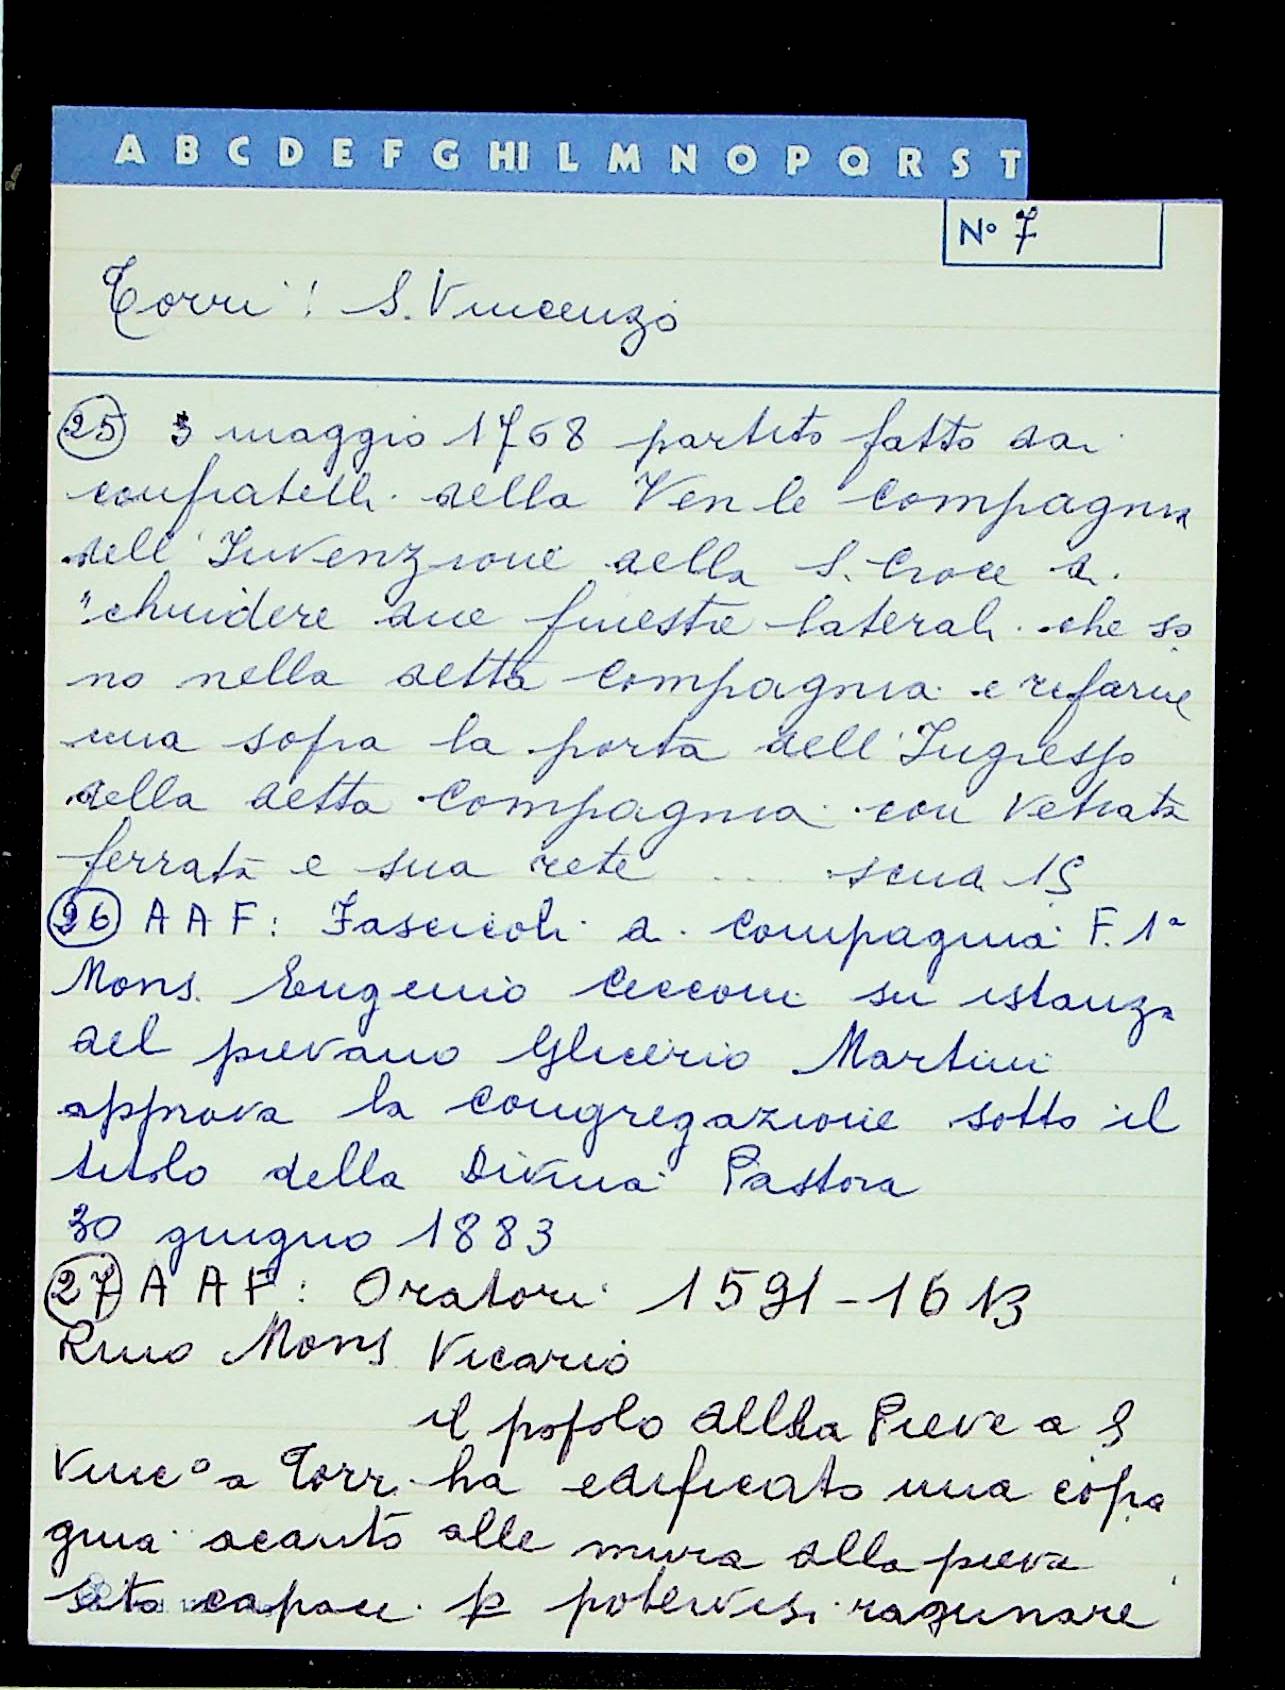 A B C D E F G HI L M N O P Q R S T
N° 7
Torri: S. Vincenzo
25 3 maggio 1768 partito fatto dai
confratelli della Ven le Compagnia
dell'Invenzione della S. Croce di
"chiudere due finestre laterali che so
no nella detta Compagnia e rifarne
una sopra la porta dell'Ingresso
della detta Compagnia con vetrata
ferrata e sua rete ... scudi 15
26 A A F: Fascicoli di Compagnia F. 1ª
Mons. Eugenio Cecconi su istanza
del pievano Glicerio Martini
approva la Congregazione sotto il
titolo della Divina Pastora
30 giugno 1883
27 A A F: Oratori 1591-1613
Rmo Mons Vicario
il popolo della Pieve a S
Vinc° a Torri ha edificato una cōpa
gnia acanto alle mura alla pieve
sito capace p potervisi ragunare